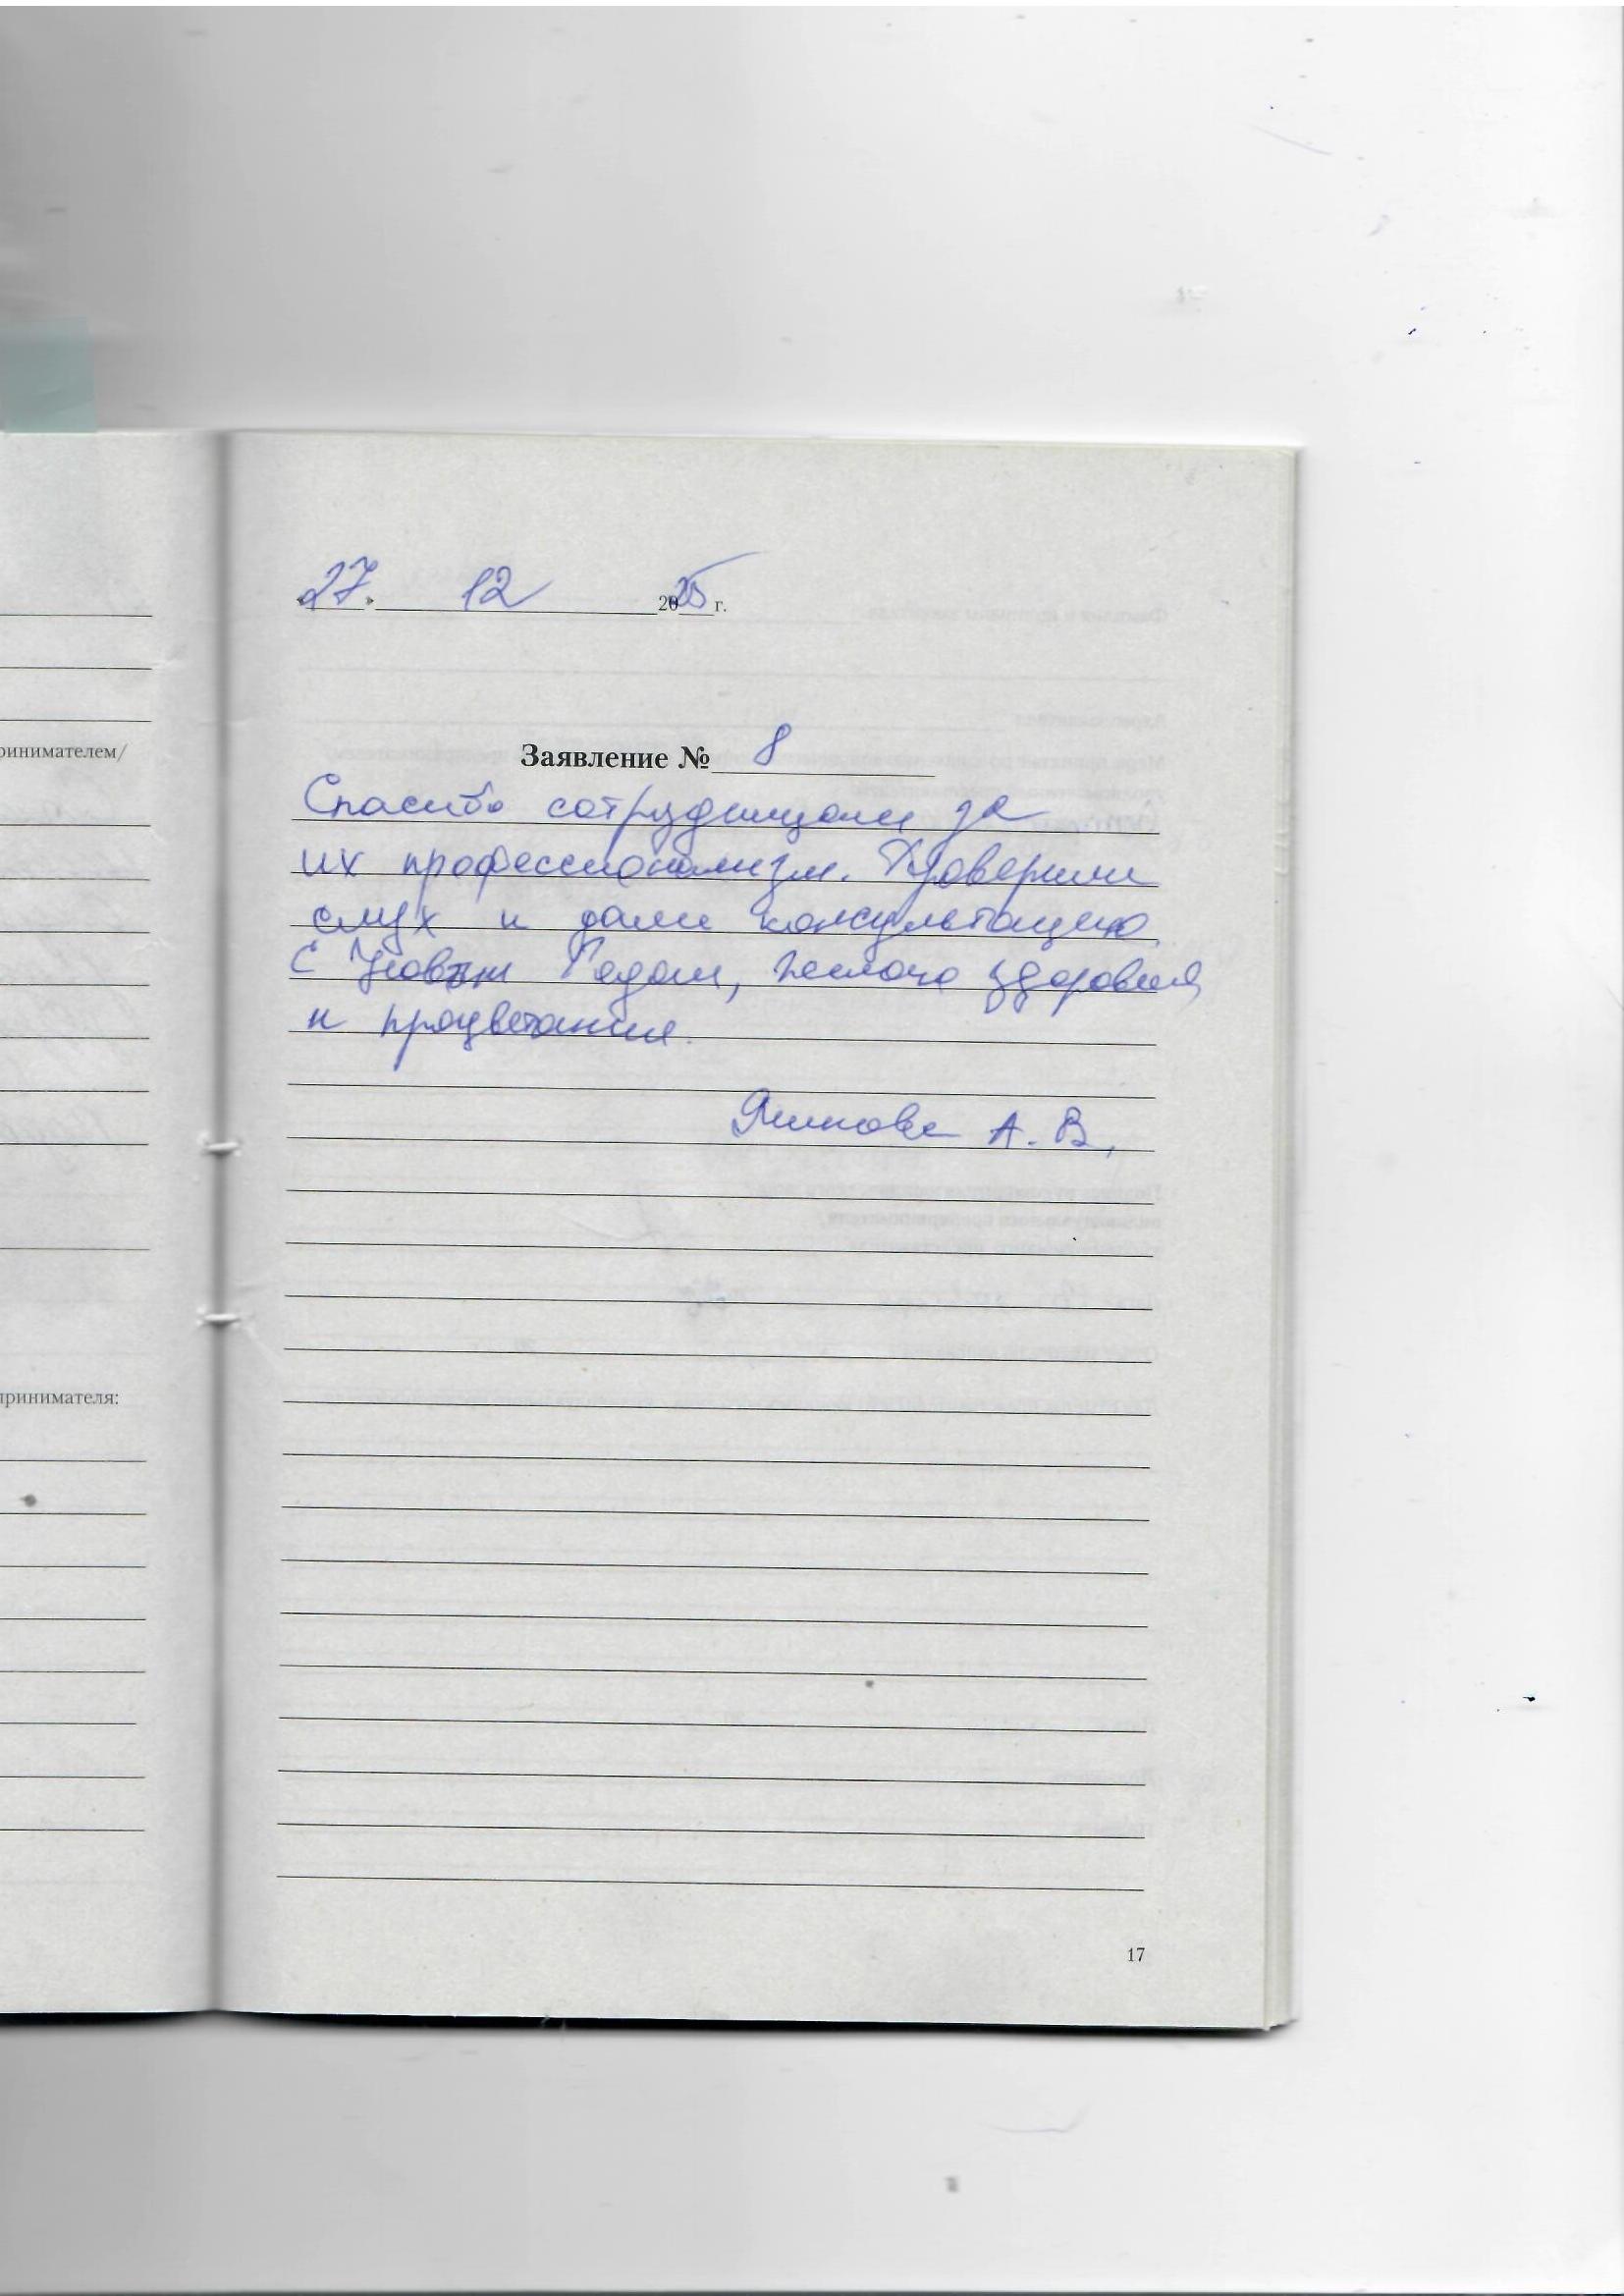 ринимателем/
принимателя:
«27» 12 2025 г.
Заявление № 8
Спасибо сотрудницам за
их профессионализм. Проверили
слух и дали консультацию.
С Новым Годом, желаю здоровья
и процветания.
А. В.
17